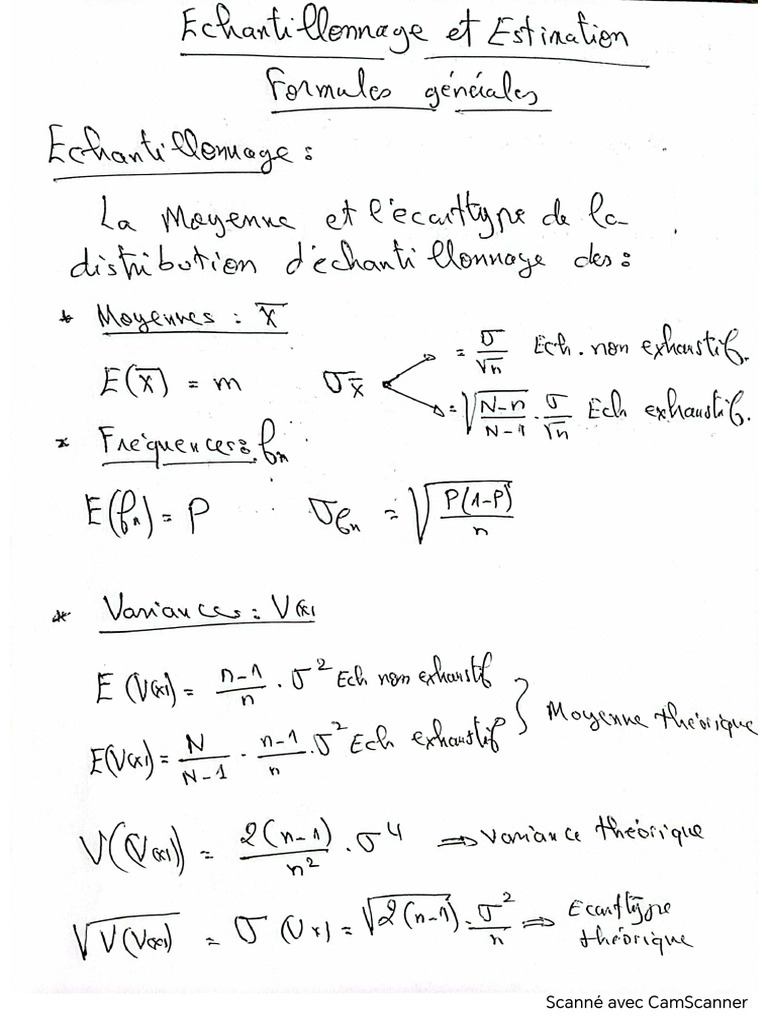 Echantillonnage et Estimation
Formules générales
Echantillonnage :
La Moyenne et l'écarttype de la
distribution d'échantillonnage des :
* Moyennes : X̅
E(X̅) = m σX̅ = σ/√n Ech. non exhaustif.
= √((N-n)/(N-1)) . σ/√n Ech exhaustif.
* Fréquences : fn
E(fn) = P σfn = √(P(1-P)/n)
* Variances : V(x)
E(V(x)) = (n-1)/n . σ² Ech non exhaustif
E(V(x)) = N/(N-1) . (n-1)/n . σ² Ech exhaustif } Moyenne théorique
V(V(x)) = 2(n-1)/n² . σ⁴ ⇒ Variance théorique
√V(V(x)) = σ(Vx) = √2(n-1) . σ²/n ⇒ Ecarttype
théorique
Scanné avec CamScanner